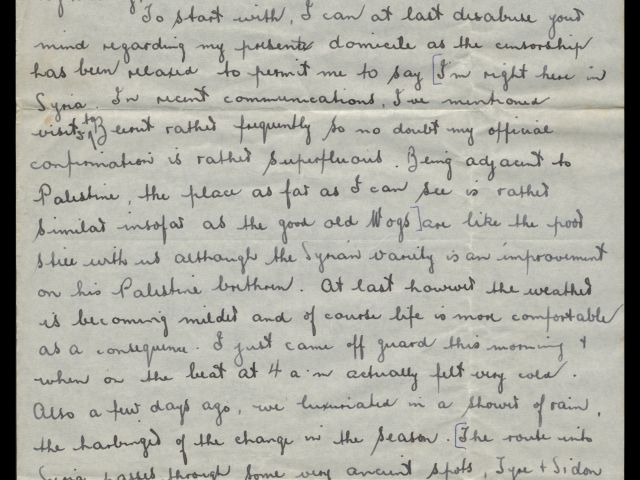 To start with, I can at last disabuse your
mind regarding my present domicile as the censorship
has been relaxed to permit me to say [I'm right here in
Syria. In recent communications, I've mentioned
visits to Beirut rather frequently so no doubt my official
confirmation is rather superfluous. Being adjacent to
Palestine, the place as far as I can see is rather
similar insofar as the good old Wogs] are like the poor
still with us although the Syrian variety is an improvement
on his Palestine brethren. At last however the weather
is becoming milder and of course life is more comfortable
as a consequence. I just came off guard this morning &
when on the beat at 4 a.m actually felt very cold.
Also a few days ago, we luxuriated in a shower of rain,
the harbinger of the change in the season. [The route into
Syria passes through some very ancient spots, Tyre & Sidon